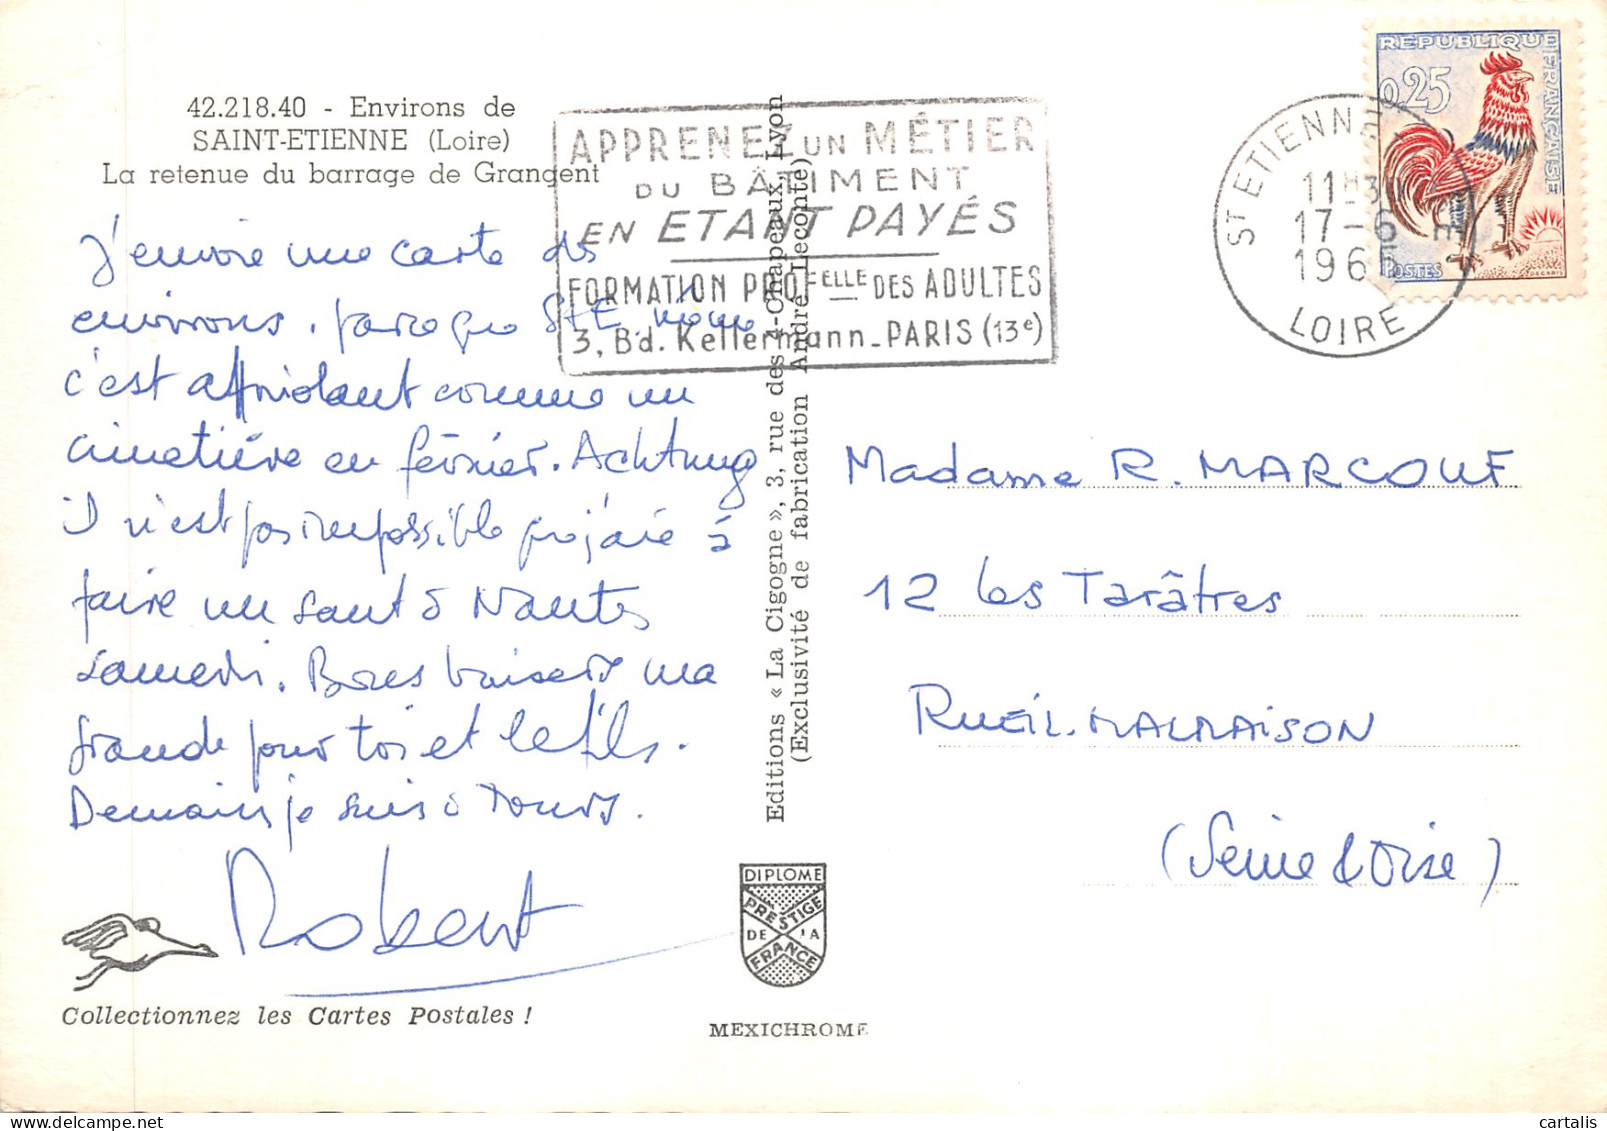 42.218.40 - Environs de
SAINT-ETIENNE (Loire)
La retenue du barrage de Grangent
J'envoie une carte des
environs, parce que St E. même
c'est affriolant comme un
cimetière en février. Achtung
il n'est pas impossible que j'aie à
faire un saut à Nantes
samedi. Bons baisers ma
grande pour toi et le fils.
Demain je suis à Tours.
Robert
Collectionnez les Cartes Postales !
APPRENEZ UN MÉTIER
DU BÂTIMENT
EN ETANT PAYÉS
FORMATION PROFELLE DES ADULTES
3, Bd. Kellermann_PARIS (13e)
Editions « La Cigogne », 3, rue des 4-Chapeaux, Lyon
(Exclusivité de fabrication André Leconte)
DIPLOME
PRESTIGE
DE LA
FRANCE
MEXICHROME
ST ETIENNE
11H30
17-6
1965
LOIRE
REPUBLIQUE FRANÇAISE
0,25
POSTES
DECARIS
Madame R. MARCOUF
12 Les Tarâtres
RUEIL-MALMAISON
(Seine & Oise)
cartalis
delcampe.net